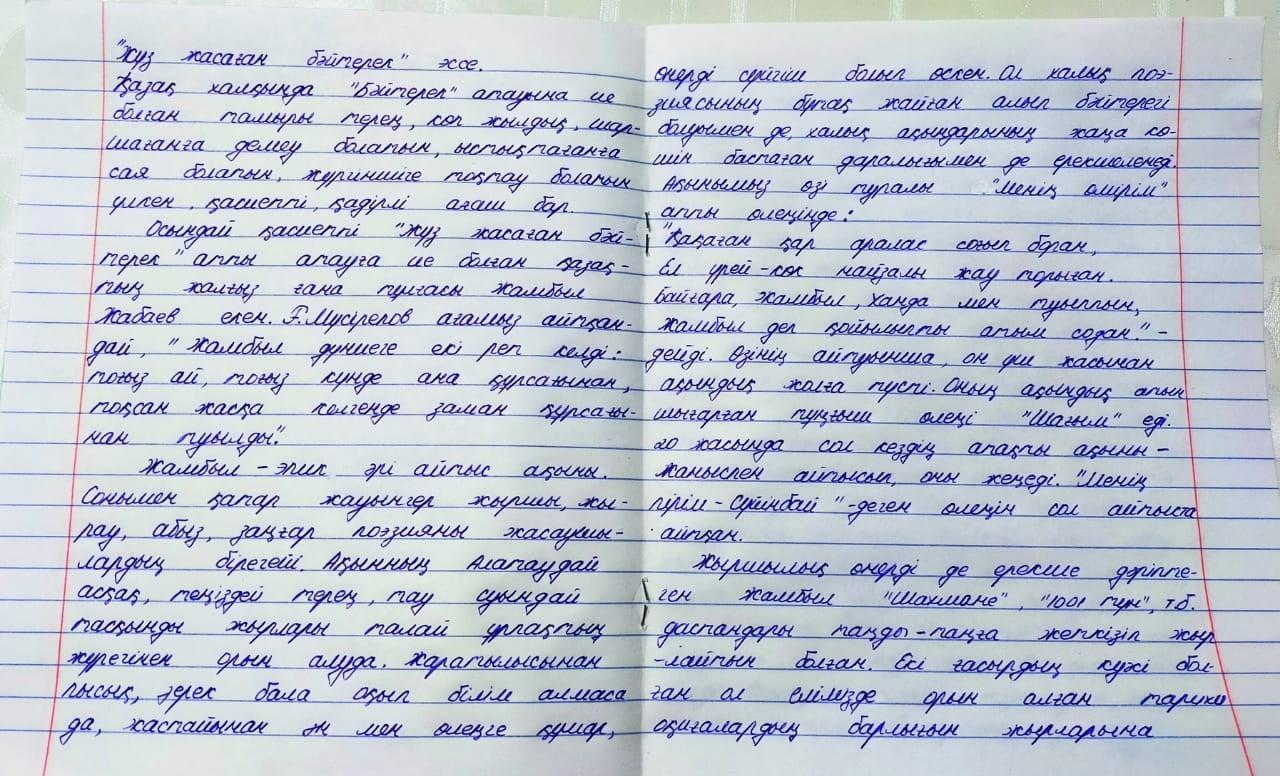 "Жүз жасаған бәйтерек" эссе.
Қазақ халқында "Бәйтерек" атауына ие
болған тамыры терең, көп жылдық, шар-
шағанға демеу болатын, ыстықтағанға
сая болатын, жүргіншіге тоқтау болатын
үлкен, қасиетті, қадірлі ағаш бар.
Осындай қасиетті "Жүз жасаған бәй-
терек" атты атауға ие болған қазақ-
тың жалғыз ғана тұлғасы Жамбыл
Жабаев екен. Ғ.Мүсірепов ағамыз айтқан-
дай, "Жамбыл дүниеге екі рет келді:
тоғыз ай, тоғыз күнде ана құрсағынан,
тоқсан жасқа келгенде заман құрсағы-
нан туылды".
Жамбыл - эпик әрі айтыс ақыны.
Сонымен қатар жауынгер жыршы, жы-
рау, абыз, заңғар поэзияны жасаушы-
лардың бірегейі. Ақынның Алатаудай
асқақ, теңіздей терең, тау суындай
тасқынды жырлары талай ұрпақтың
жүрегінен орын алуда. Жаратылысынан
пысық, зерек бала оқып білім алмаса
да, жастайынан ән мен өлеңге құмар,
өнерді серігім болып өскен. Ол халық поэ-
зиясының бұтақ жайған алып бәйтерегі
болуымен де, халық ақындарының жаңа кө-
шін бастаған даралығымен де ерекшеленеді.
Ақынымыз өзі туралы "Менің өмірім"
атты өлеңінде:
"Қақаған қар аралас соғып боран,
Ел үрей-көк найзалы жау торыған.
Байғара, Жамбыл, Ханда мен туыппын,
Жамбыл деп қойылыпты атым содан." -
дейді. Өзінің айтуынша, он үш жасынан
ақындық жолға түсті. Оның ақындық атын
шығарған тұңғыш өлеңі "Шағым" еді.
20 жасында сол кездің атақты ақыны -
Жаныспен айтысып, оны жеңеді. "Менің
пірім - Сүйінбай" -деген өлеңін сол айтыста
айтқан.
Жыршылық өнерді де ерекше дәріпте-
ген Жамбыл "Шахмане", "1001 түн", т.б.
дастандары таңды-таңға жеткізіп жыр
-лайтын болған. Екі ғасырдың куәсі бол-
ған ол елімізде орын алған тарихи
оқиғалардың барлығын жырларына